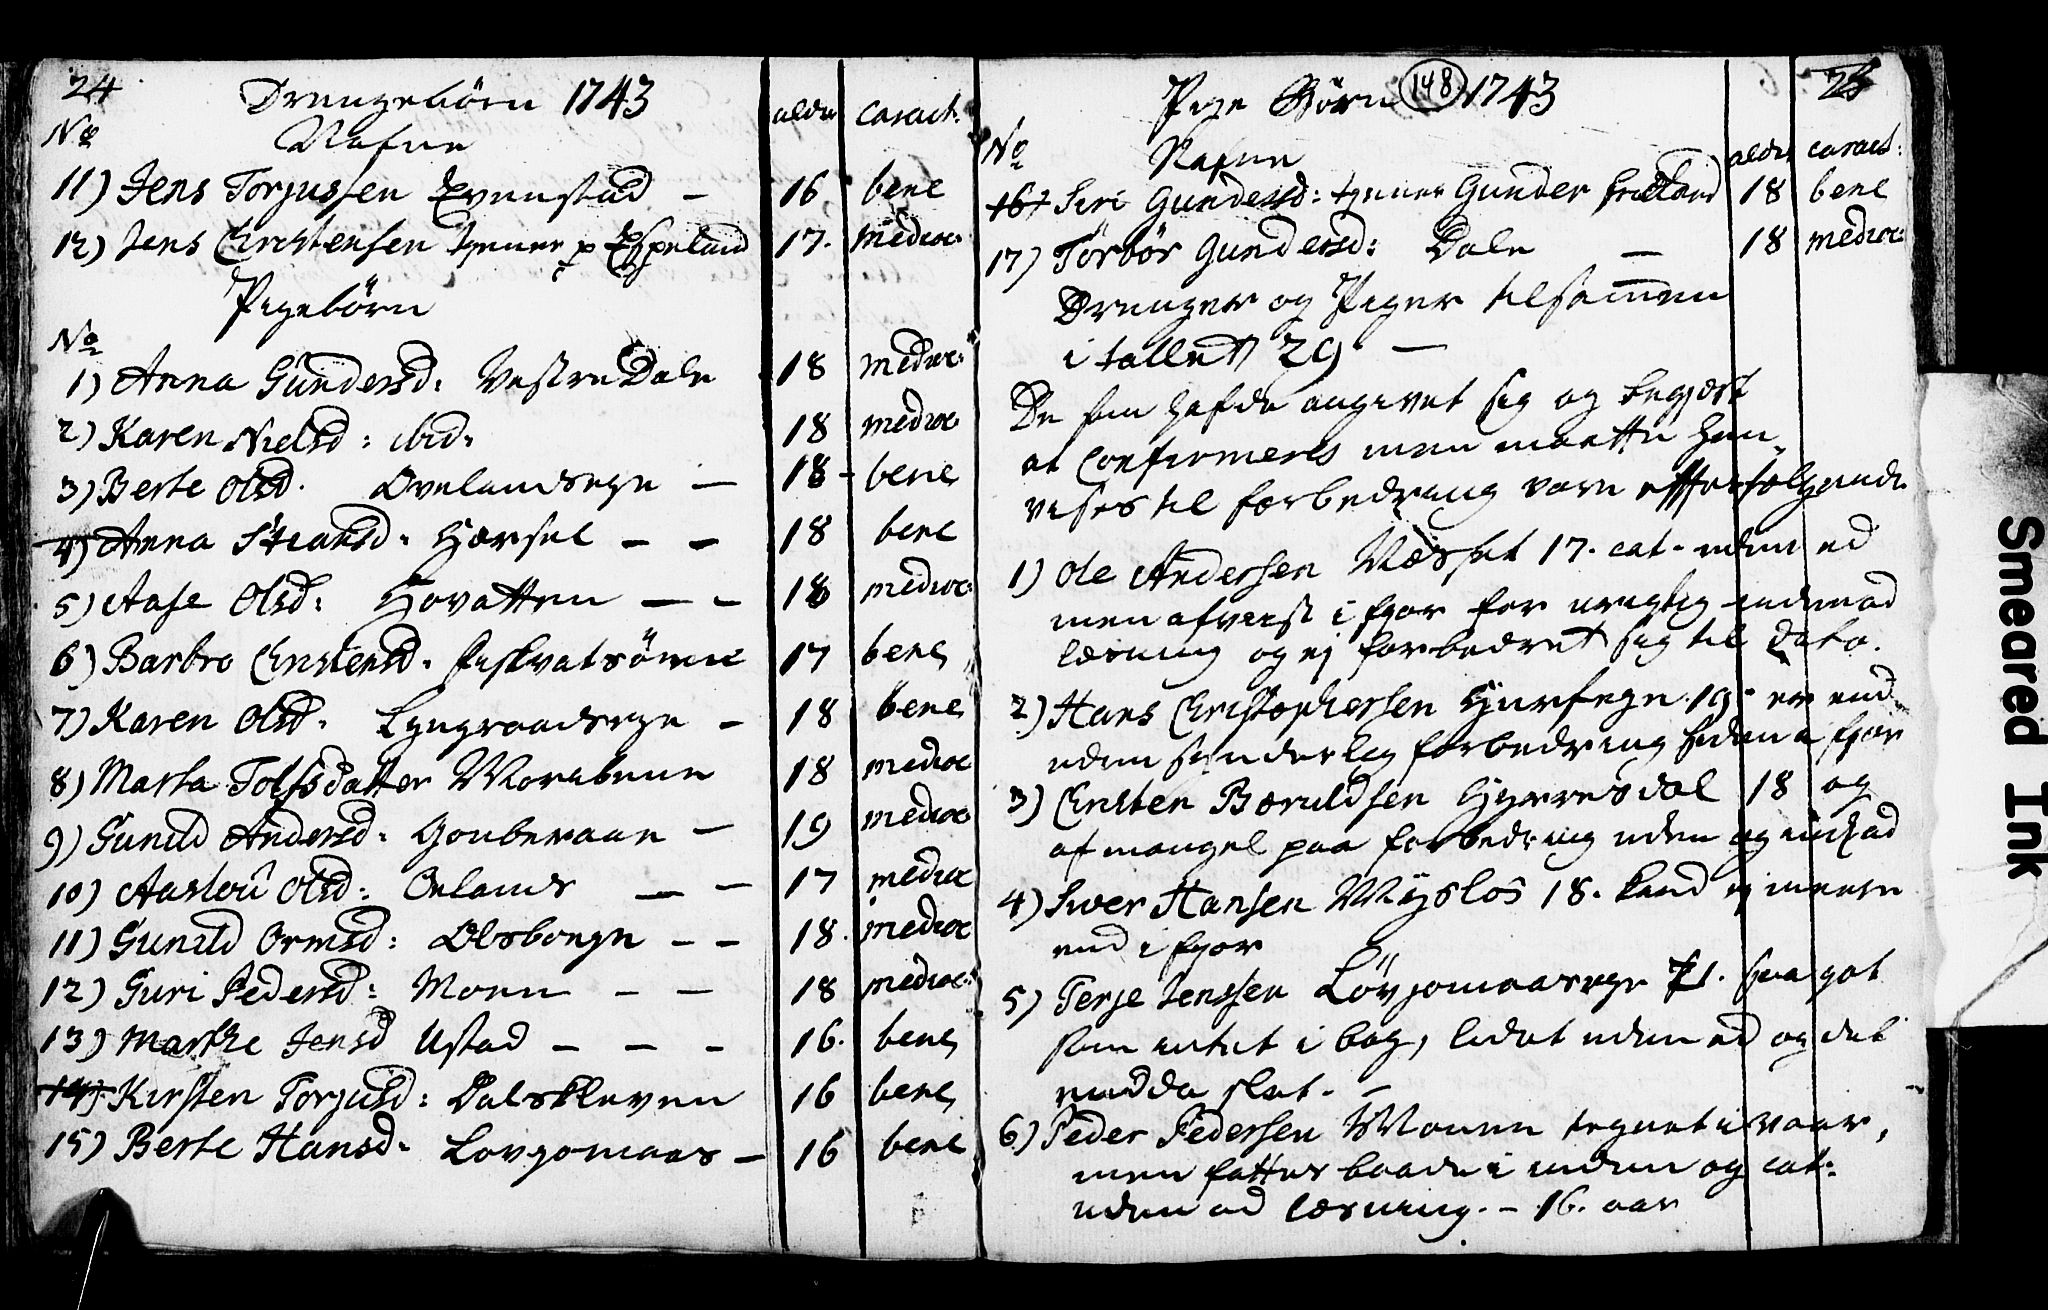 24
Drengebörn 1743
alder caract.
No Nafne
11) Jens Torjussen Evenstad — 16 bene
12) Jens Christensen tjener p Espeland 17. medioc:
Pigebörn
No
1) Anna Gundersd: Vestre Dale 18 medioc:
2) Karen Nielsd: ibid: 18 medioc:
3) Berte Olsd. Ovelandsegn — 18 - bene
4) Anna d. Hersel — — 18 bene
5) Aase Olsd: Hovatten — — 18 medioc:
6) Barbro Christensd. Fiskvatsönne 17 bene
7) Karen Olsd: Lyngraadsegn — 18 bene
8) Marta Tolfsdatter Morebene 18 medioc
9) Gunild Andersd: Gouberaae — 19 medioc:
10) Aaslou Olsd: Oelands — — 17 medioc
11) Gunild Ormsd: Olsborgn — — 18. medioc
12) Guri Pedersd: Moen — — 18 medioc:
13) Marthe Jensd Ustad — — — 16. bene
14) Kirsten Torjusd: Dalskleven 16 bene
15) Berte Hansd. Lovjomaas — 16 bene
25
Pige Börn 148 1743
No Nafne alder caract:
16) Siri Gundersd: tjener Gunder 18 bene
17) Törbör Gundersd: Dale — 18 medioc:
Drenger og Piger tilsam̅en
i tallet 29 —
De som hafde angivet sig og begjert
at Confirmeres men maatte hen„
vises til forbedring vare efterfölgende
1) Ole Andersen Næsset 17. cat. uden ad
men afviist i fjor for urigtig indenad
læsning og ej forbedret sig til Dato.
2) Hans Christophersen Hjursegn 19. er end
uden synderlig forbedring siden i fjor
3) Christen Beruldsen Gjerresdal 18 og
af mangel paa forbedring uden og indad
4) Siver Hansen Myglos 18. kand ej meere
end i fjor
5) Terje Jenssen Lövjomaasegn 21. saa got
som intet i bog, lidet uden ad og det
endda slet. —
6) Peder Pedersen Monen tegnet i vaar,
men fatter baade i inden og cat:
uden ad læsning. — 16. aar
Smeared Ink